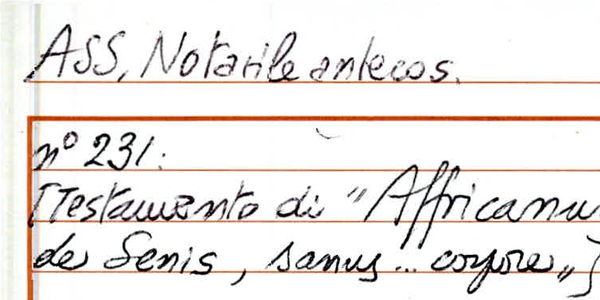 ASS, Notarile antecos.
n° 231:
[Testamento di "Affricanus
de Senis, sanus... corpore"]